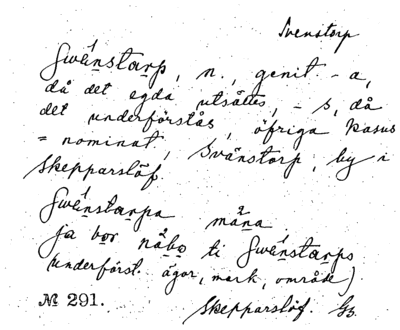 Svenstorp
Swänstarp, n., genit. -a,
då det egda utsättes, -s, då
det underförstås, öfriga kasus
= nominat, Svänstorp, by i
Skepparslöf.
Swänstarpa måna,
ja bor nåbo ti Swänstarps
(underförst. ägor, mark, område)
№ 291. Skepparslöf.